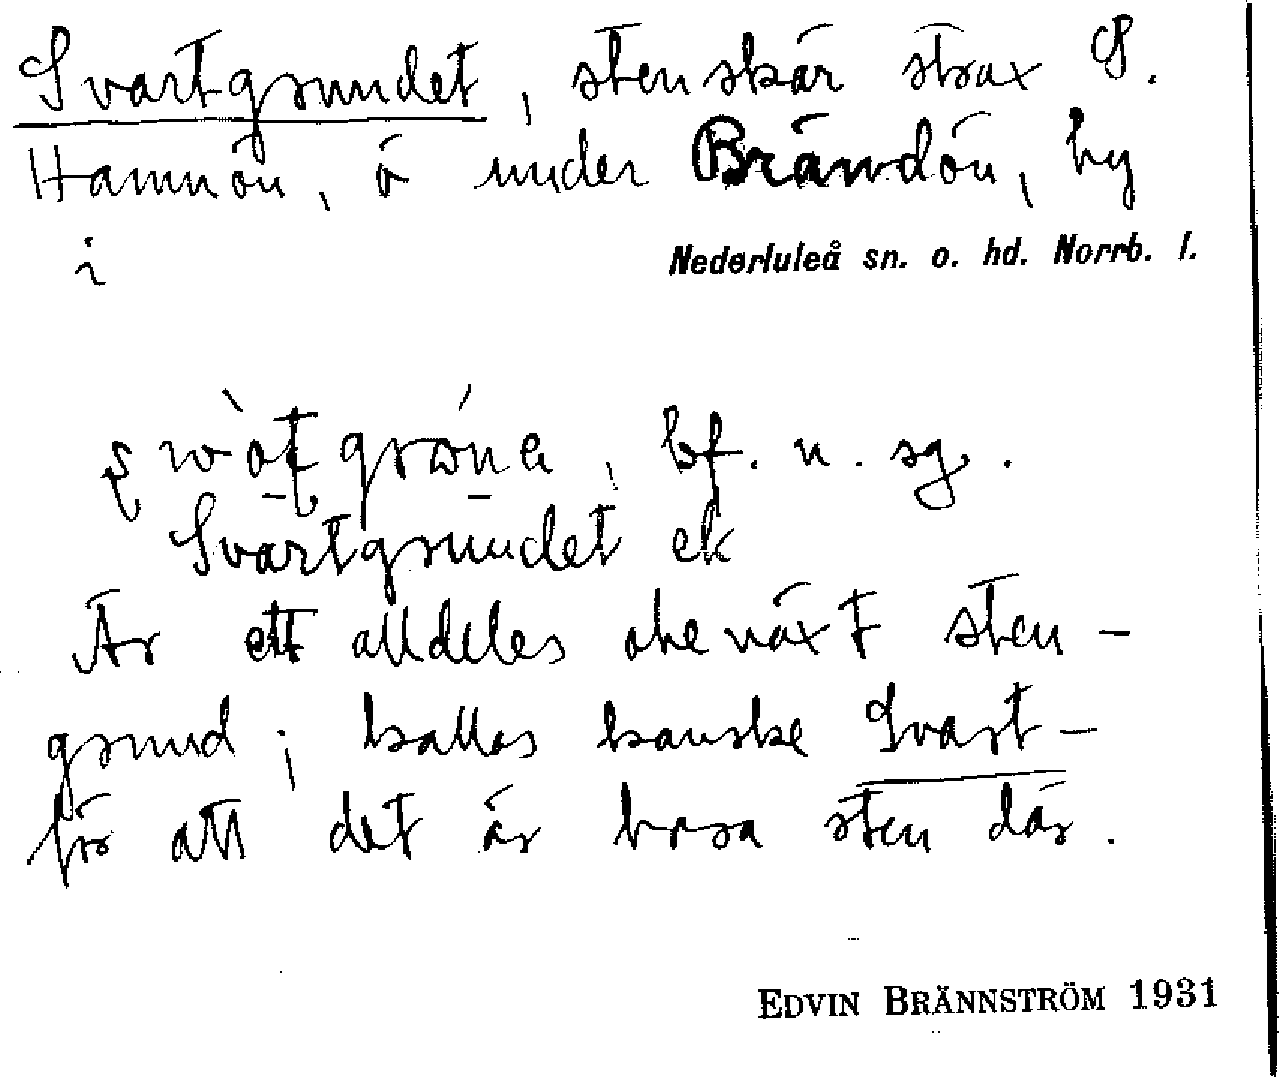 Svartgrundet, stenskär strax S.
Hamnön, ö under Brändön, by
i Nederluleå sn. o. hd. Norrb. l.
bf. n. sg.
Svartgrundet ek
Är ett alldeles obeväxt sten-
grund; kallas kanske Svart-
för att det är bara sten där.
EDVIN BRÄNNSTRÖM 1931